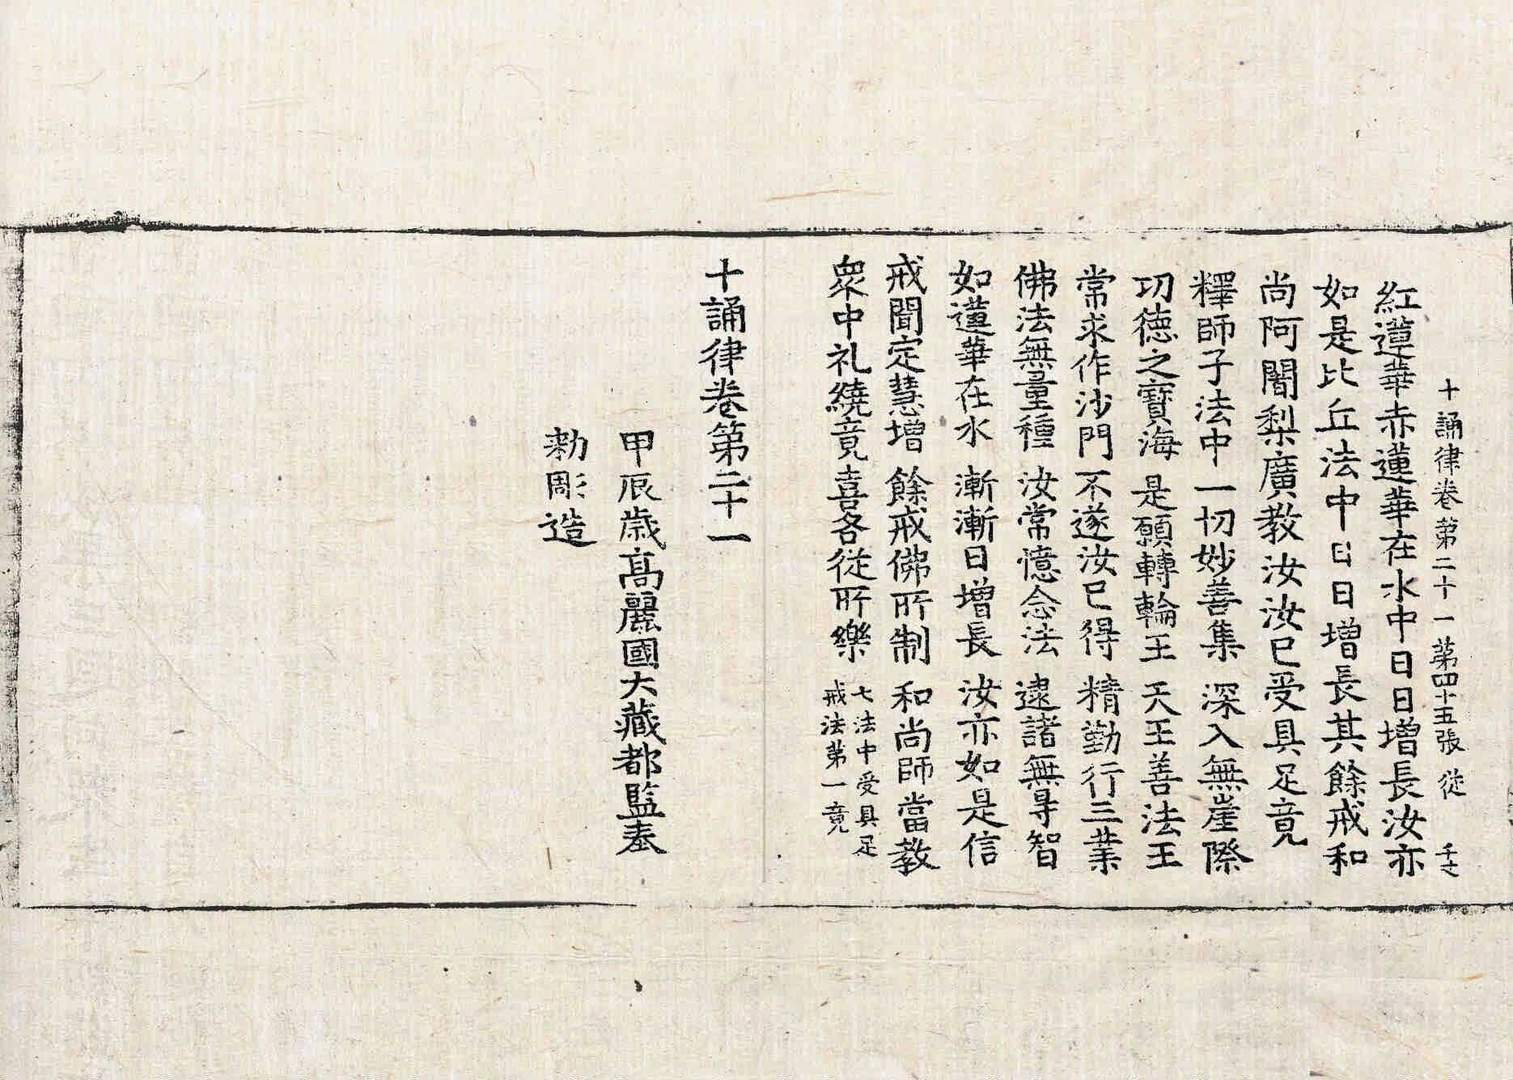 十誦律卷第二十一　第四十五張　従
紅蓮華赤蓮華在水中日日增長汝亦
如是比丘法中日日增長其餘戒和
尚阿闍梨廣教汝汝已受具足竟
釋師子法中　一切妙善集　深入無崖際
功德之寶海　是願轉輪王　天王善法王
常求作沙門　不遂汝已得　精勤行三業
佛法無量種　汝常憶念法　逮諸無㝵智
如蓮華在水　漸漸日增長　汝亦如是信
戒聞定慧增　餘戒佛所制　和尚師當教
衆中礼繞竟　喜各從所樂　七法中受具足
戒法第一竟
十誦律卷第二十一
甲辰歲高麗國大藏都監奉
勑彫造